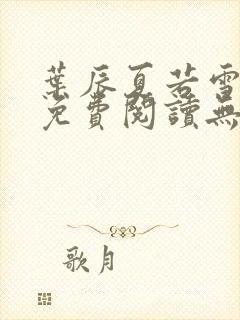 葉辰夏若雪
免費閱讀無
歌月